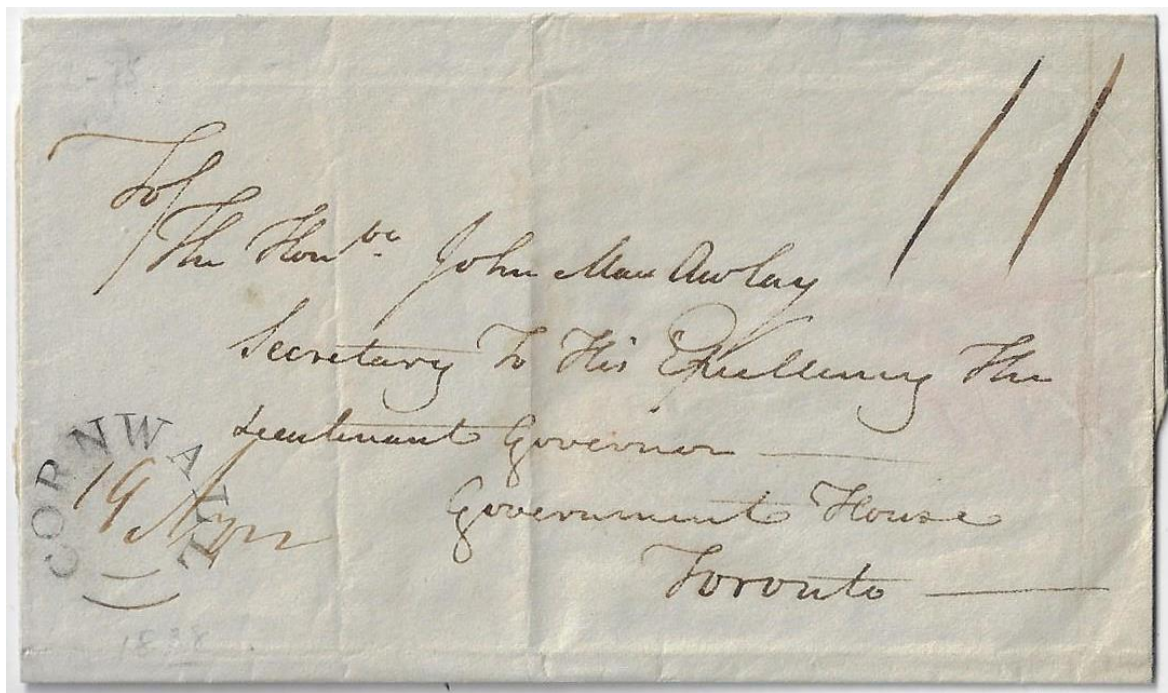 11
To/
The Hon^ble John MacAwlay
Secretary To His Excellency The
Lieutenant Governor
Government House
Toronto
CORNWALL
19 Apr
1838